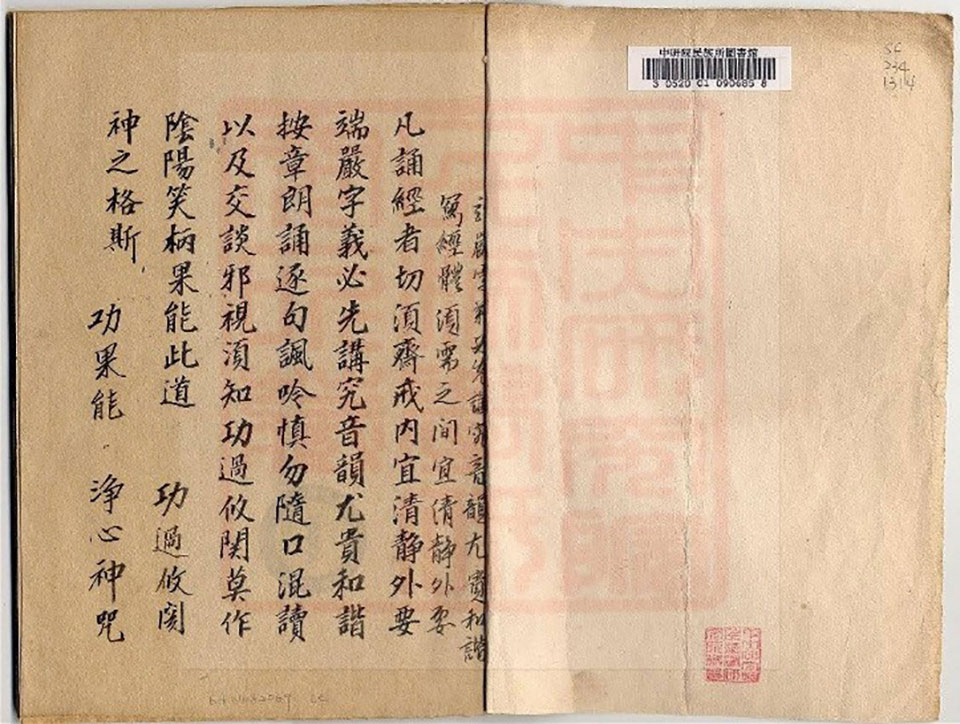 中研院民族所圖書館
3 0520 01 090685 8
234
1314
嚴字義必先講究音韻尤貴和諧
寫經體須需之间宜清静外要
凡誦經者切須齋戒内宜清静外要
端嚴字義必先講究音韻尤貴和諧
按章朗誦逐句諷吟慎勿隨口混讀
以及交談邪視須知功過攸関莫作
陰陽笑柄果能此道 功過攸関
神之格斯 功果能 淨心神咒